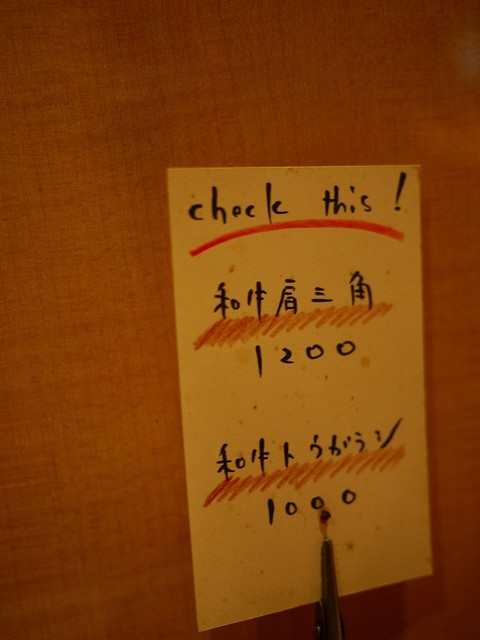 check this!
和牛肩三角
1200
和牛トウガラシ
1000